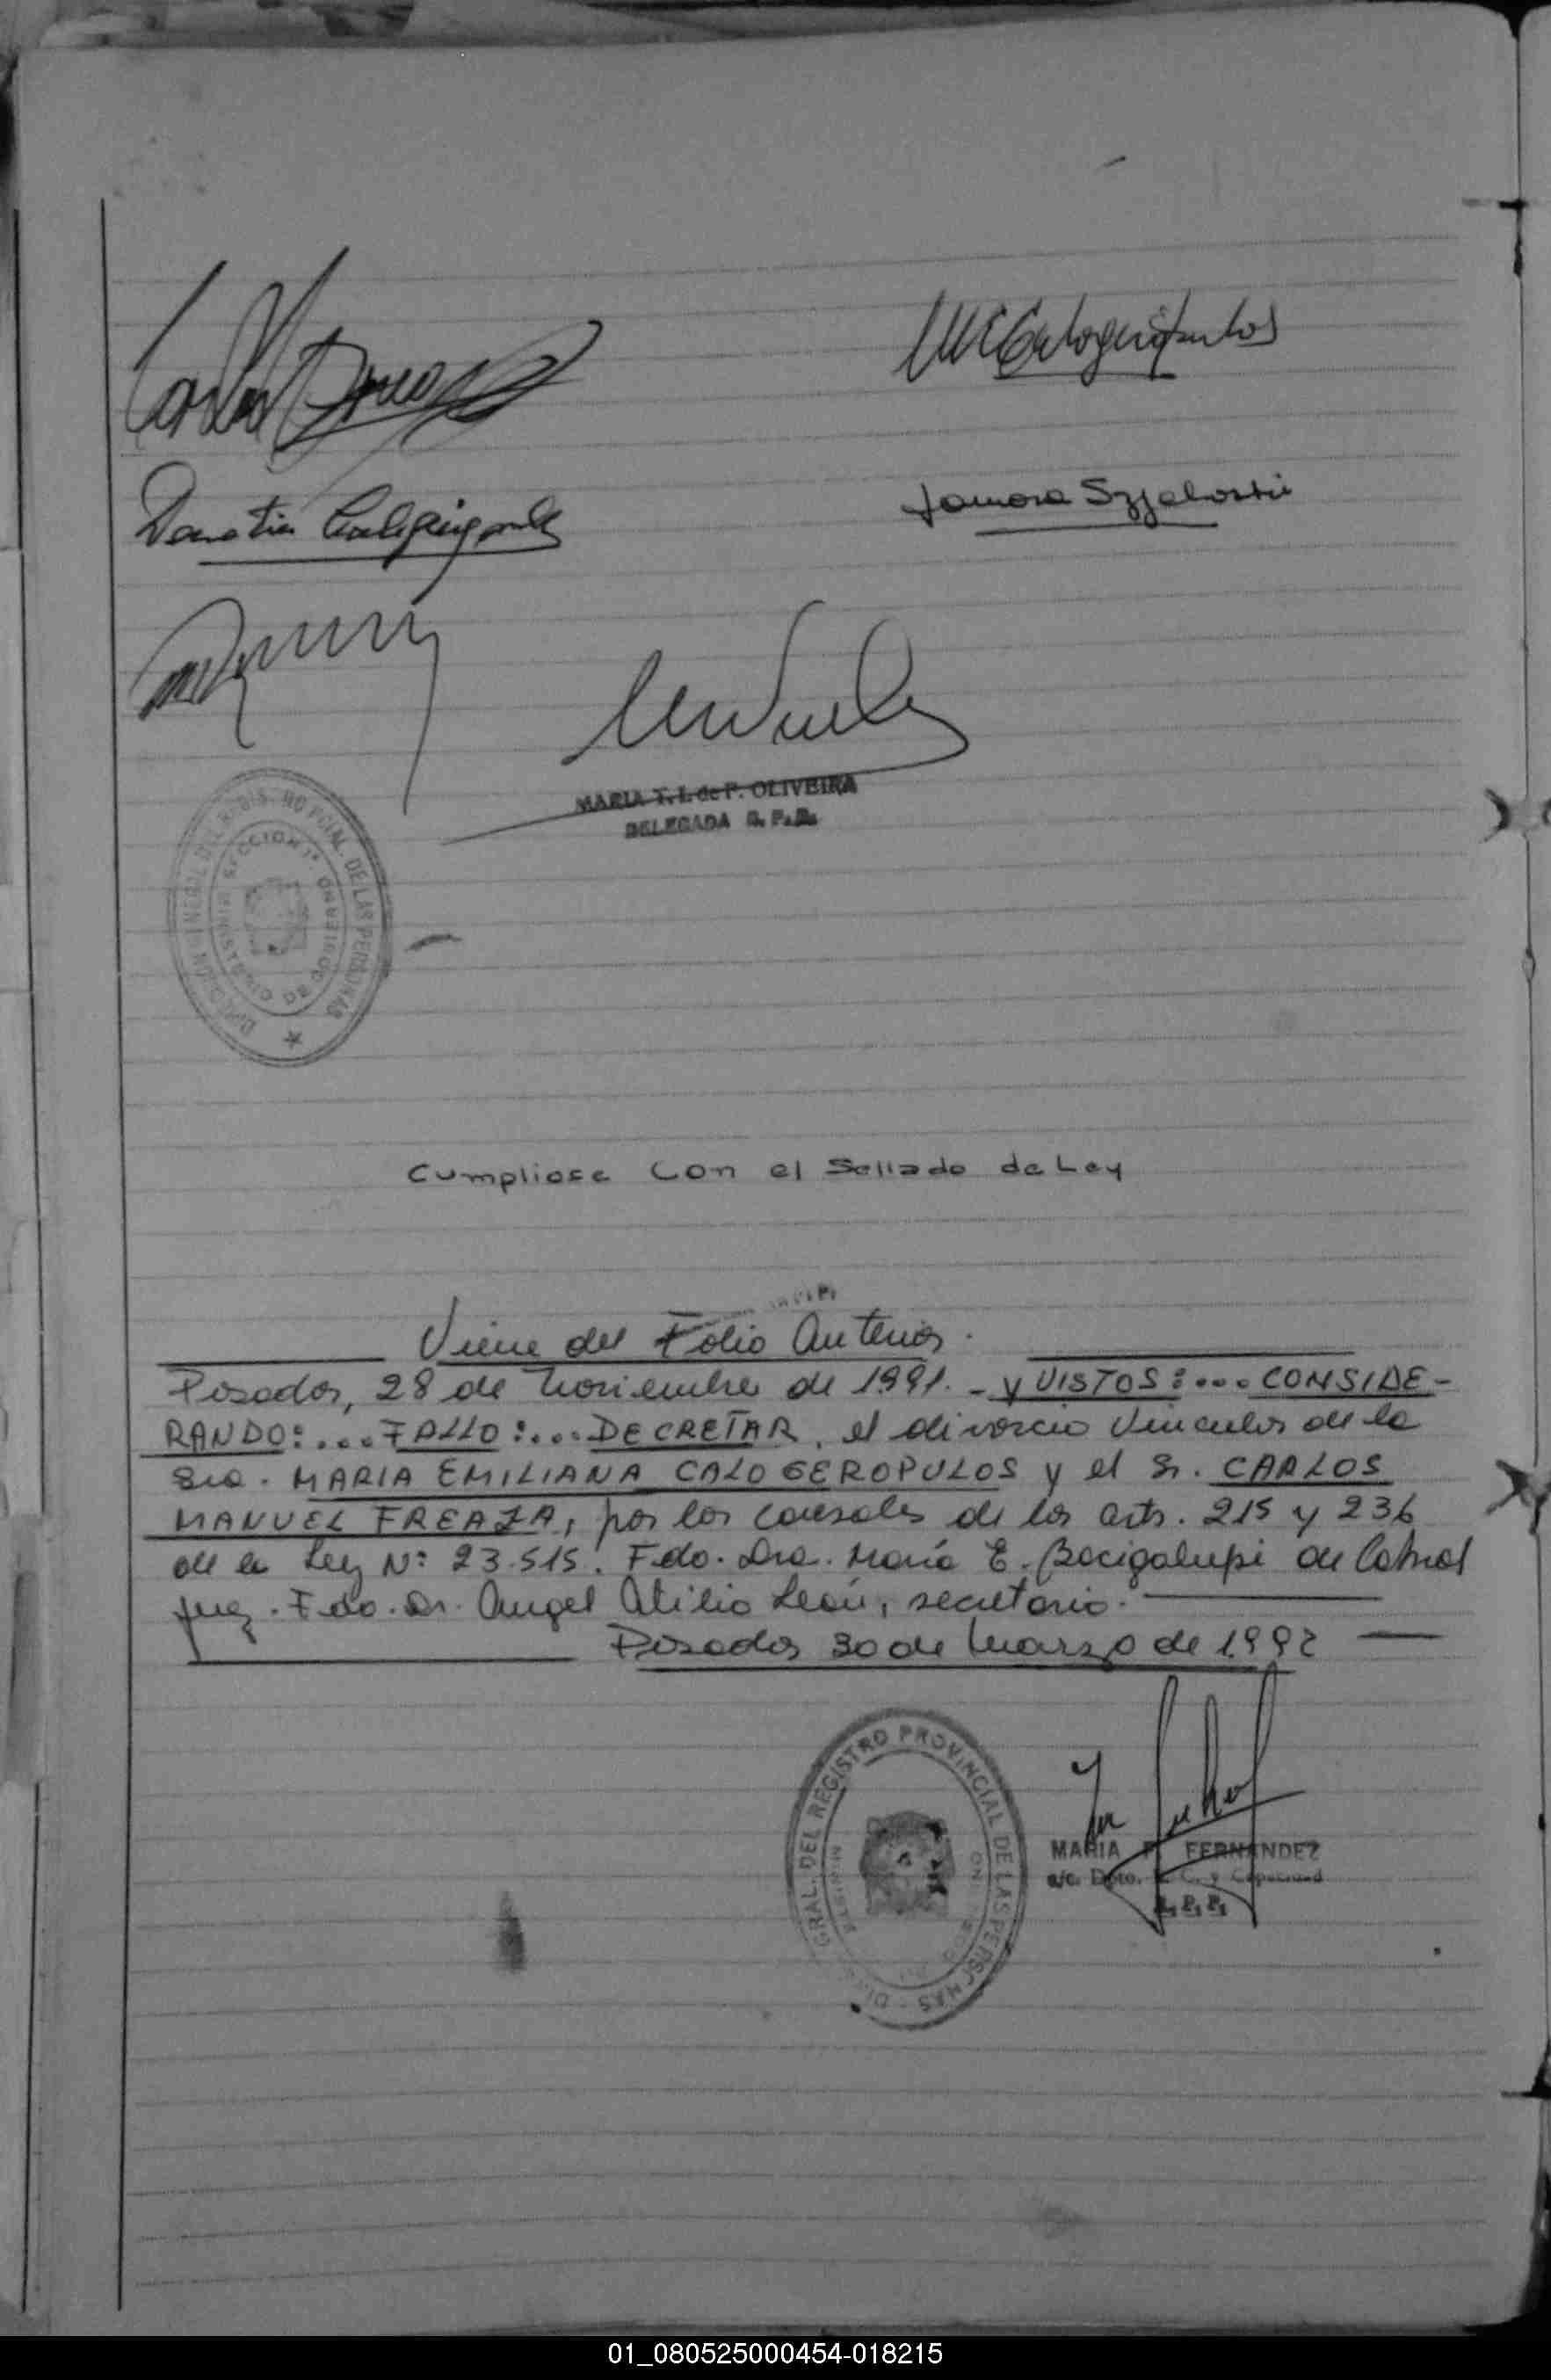 MARIA T. I. de P. OLIVEIRA
DELEGADA R. P. P.
SECCION 1ª
DE LAS PERSONAS
Cumpliose con el Sellado de Ley
Viene del Folio Anterior.
Posadas, 28 de Noviembre de 1991. - y VISTOS:... CONSIDE-
RANDO:... FALLO:... DECRETAR, el divorcio vincular de la
Sra. MARIA EMILIANA CALOGEROPULOS y el Sr. CARLOS
MANUEL FREAZA, por las causales de los arts. 215 y 236
de la Ley Nº 23.515. Fdo. Dra. María E. Bacigalupi de Cabral
Juez. Fdo. Dr. Angel Atilio León, secretario.
Posadas 30 de Marzo de 1992
GRAL. DEL REGISTRO PROVINCIAL DE LAS PERSONAS
MARIA FERNANDEZ
a/c. Dpto. C. y Capacidad
R.P.P.
01_080525000454-018215